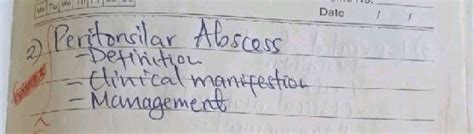 Date / /
2) Peritonsilar Abscess
- Definition
- Clinical manifestion
- Management